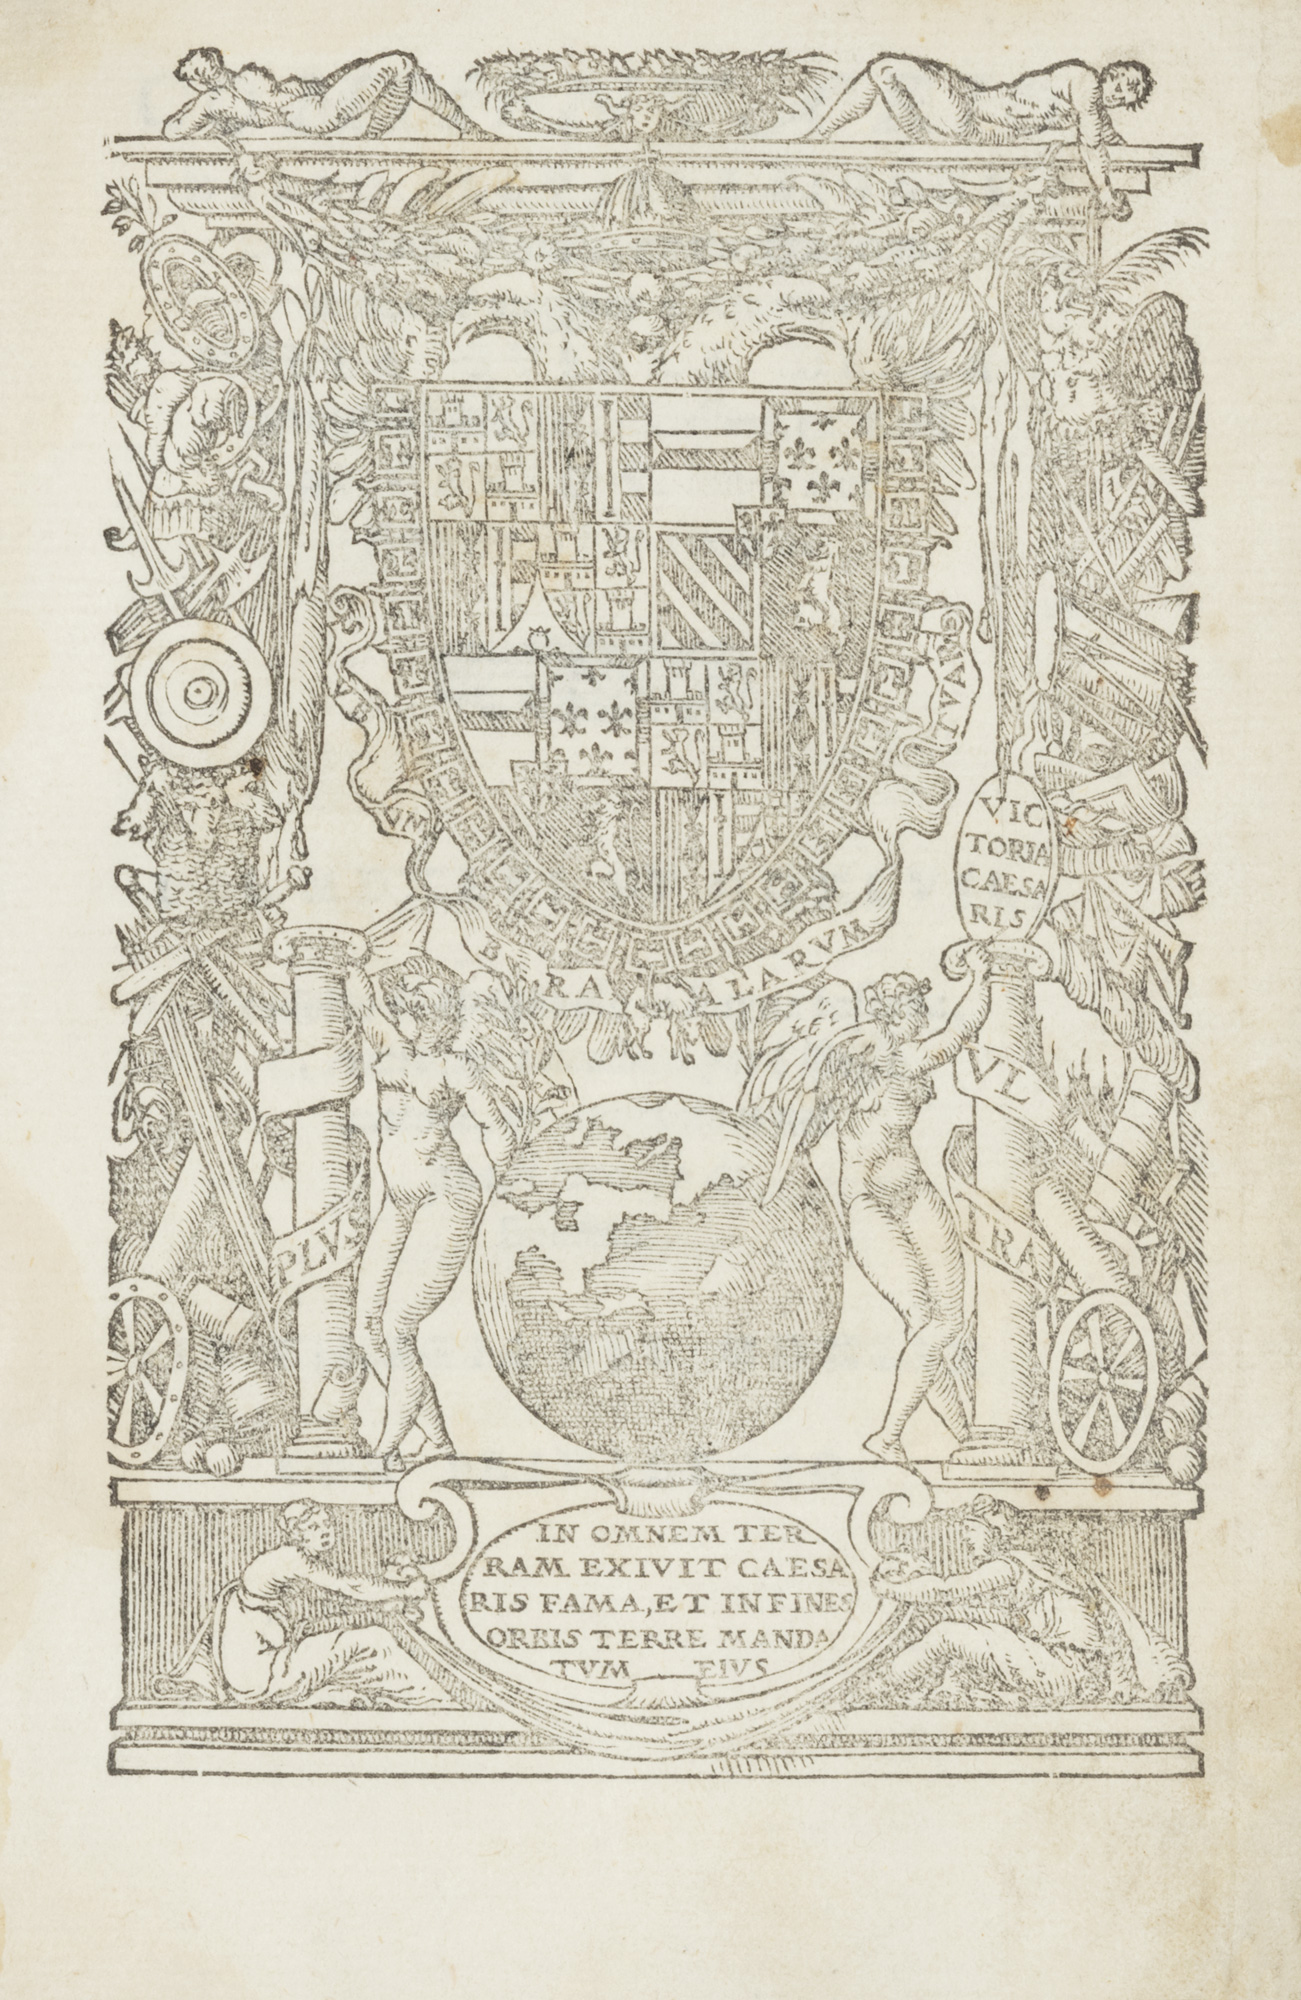 SVB
VN
BRA ALARVM
TVARVM
VIC
TORIA
CAESA
RIS
PLVS
VL
TRA
IN OMNEM TER
RAM EXIVIT CAESA
RIS FAMA, ET IN FINES
ORBIS TERRE MANDA
TVM EIVS